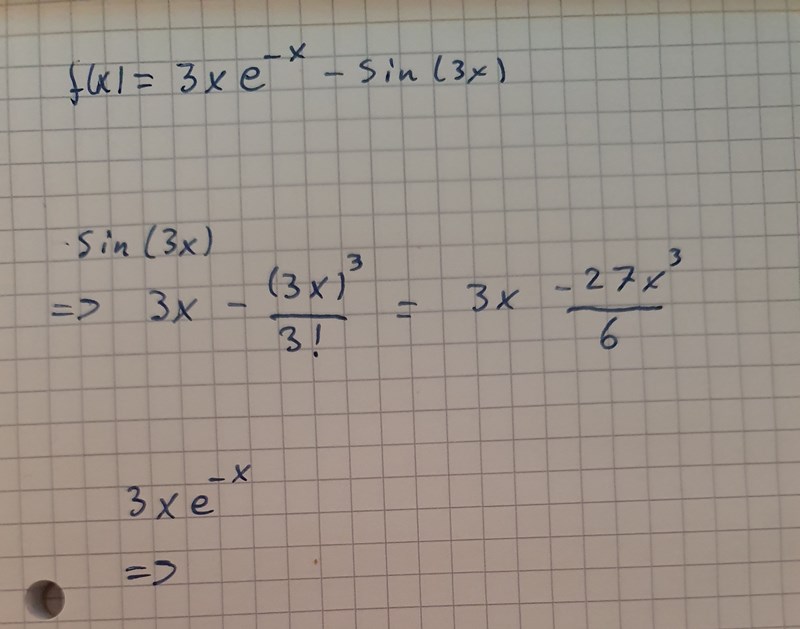 f(x) = 3xe^{-x} - sin(3x)
sin(3x)
=> 3x - \frac{(3x)^3}{3!} = 3x \frac{-27x^3}{6}
3xe^{-x}
=>